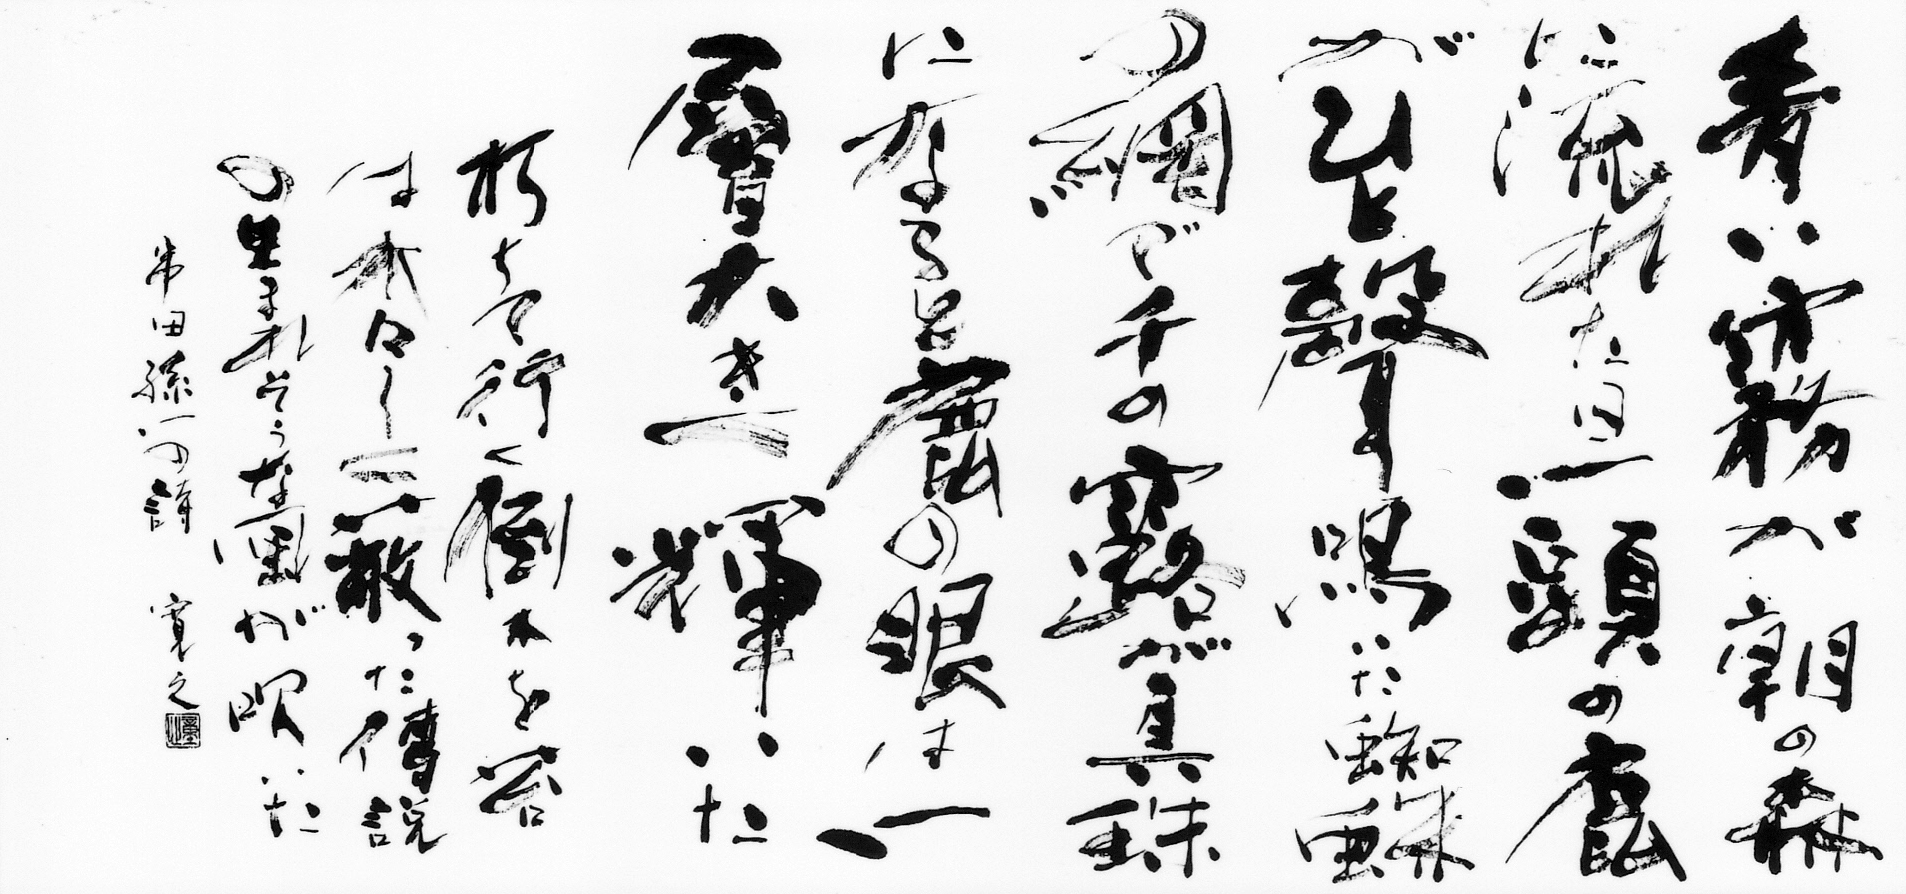 青い霧が朝の森
に流れた日一頭の鹿
がひと聲鳴いた蜘蛛
の網で千の露が真珠
になると鹿の眼は一
層大きく輝いた
朽ちて行く倒木を苔
は木々しく蔽った傳説
の生まれそうな風が吹いた
串田孫一の詩 寛之